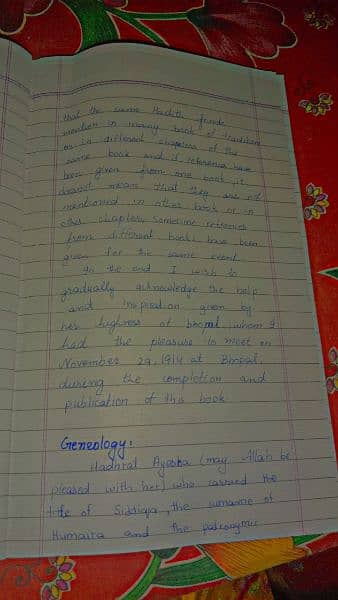 that the same Hadith finds
mention in many book of tradition
as in different chapters of the
same book and if reference have
been given from one book, it
doesnot mean that they are not
mentioned in other book or in
other chapters. Sometime refrences
from different books have been
given for the same event.
In the end I wish to
gradually acknowledge the help
and inspiration given by
her highness of bhopal whom I
had the pleasure to meet on
November 29, 1914 at Bhopal,
during the completion and
publication of this book
Geneology:
Hadhrat Ayesha (may Allah be
pleased with her) who carried the
title of Siddiqa, the surname of
Humaira and the patronymic